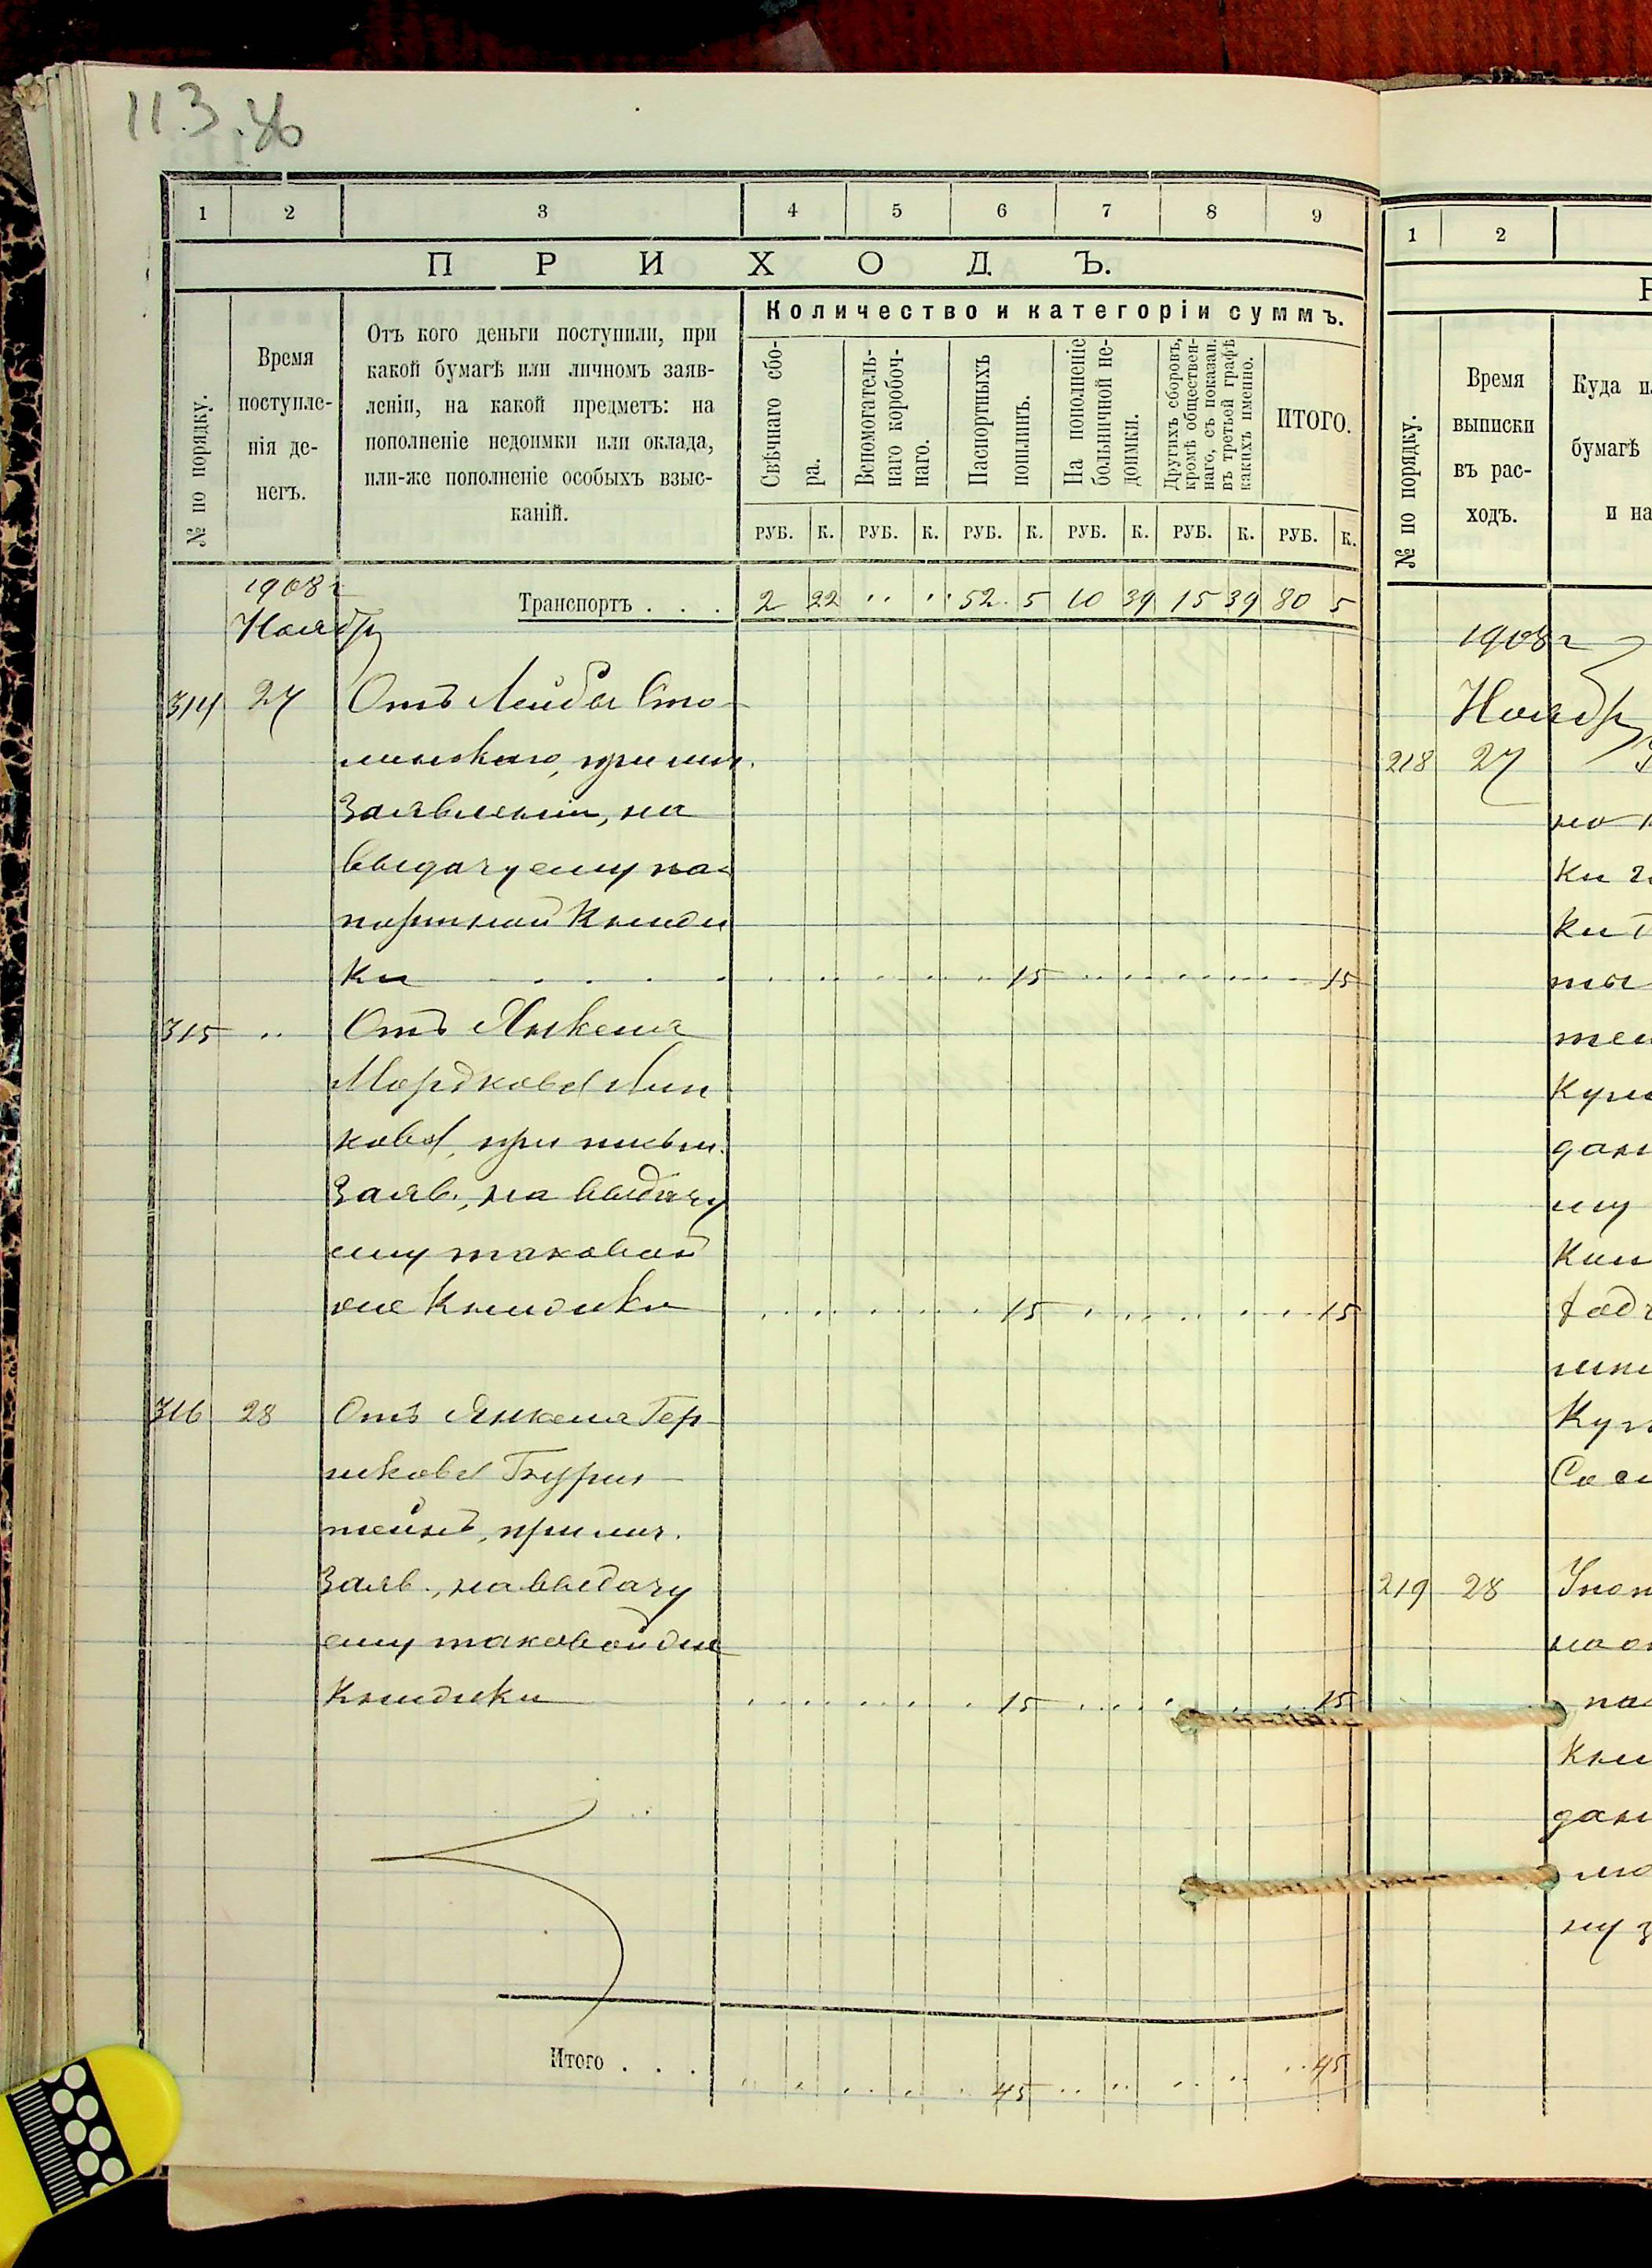 113.об
1 2 3 4 5 6 7 8 9
ПРИХОДЪ.
№ по порядку.
Время
поступле-
нія де-
негъ.
Отъ кого деньги поступили, при
какой бумагѣ или личномъ заяв-
леніи, на какой предметъ: на
пополненіе недоимки или оклада,
или-же пополненіе особыхъ взыс-
каній.
Количество и категоріи суммъ.
Свѣчнаго сбо-
ра.
Вспомогатель-
наго коробоч-
наго.
Паспортныхъ
пошлинъ.
На пополненіе
больничной не-
доимки.
Другихъ сборовъ,
кромѣ обществен-
наго, съ показан.
въ третьей графѣ
какихъ именно.
ИТОГО.
РУБ. К. РУБ. К. РУБ. К. РУБ. К. РУБ. К. РУБ. К.
1908 г
Ноябр
Транспортъ . . . 2 22 " " 52 5 10 39 15 39 80 5
314 27 Отъ Лейбы Сто-
линскаго, при лич.
заявленіи, на
выдачу ему пас
портной книж
ки 15 15
315 " Отъ Янкеля
Мордхова
кова, при письм.
заяв., на выдачу
ему таковой
же книжки 15 15
316 28 Отъ Янкеля Гер
шкова
штейнъ, при лич.
заяв., на выдачу
ему таковой же
книжки 15 15
Итого . . . 45 45
1 2
№ по порядку.
Время
выписки
въ рас-
ходъ.
Куда
бумагѣ
и на
1908 г
Ноябр
218 27
219 28